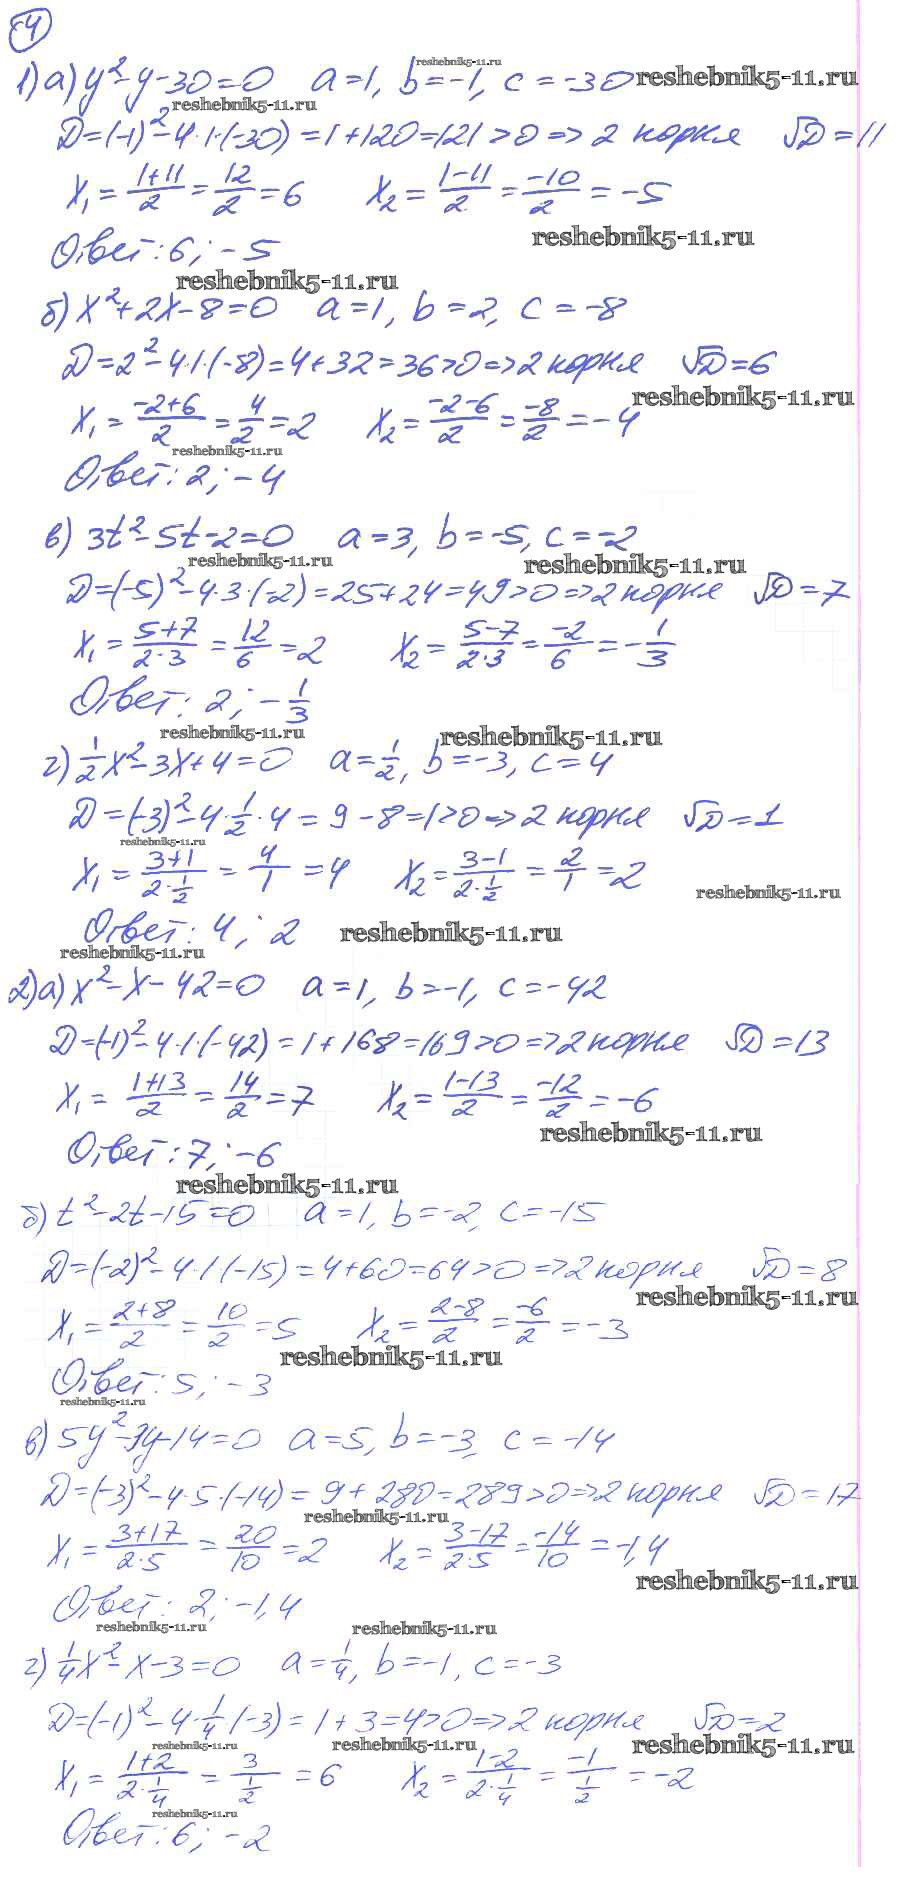 4
reshebnik5-11.ru
1) а) y² - y - 30 = 0 a = 1, b = -1, c = -30 reshebnik5-11.ru
reshebnik5-11.ru
D = (-1)² - 4·1·(-30) = 1 + 120 = 121 > 0 => 2 корня √D = 11
x₁ = (1+11)/2 = 12/2 = 6 x₂ = (1-11)/2 = -10/2 = -5
reshebnik5-11.ru
Ответ: 6; -5
reshebnik5-11.ru
б) x² + 2x - 8 = 0 a = 1, b = 2, c = -8
D = 2² - 4·1·(-8) = 4 + 32 = 36 > 0 => 2 корня √D = 6
reshebnik5-11.ru
x₁ = (-2+6)/2 = 4/2 = 2 x₂ = (-2-6)/2 = -8/2 = -4
reshebnik5-11.ru
Ответ: 2; -4
в) 3t² - 5t - 2 = 0 a = 3, b = -5, c = -2
reshebnik5-11.ru reshebnik5-11.ru
D = (-5)² - 4·3·(-2) = 25 + 24 = 49 > 0 => 2 корня √D = 7
x₁ = (5+7)/(2·3) = 12/6 = 2 x₂ = (5-7)/(2·3) = -2/6 = -1/3
Ответ: 2; -1/3
reshebnik5-11.ru reshebnik5-11.ru
г) 1/2 x² - 3x + 4 = 0 a = 1/2, b = -3, c = 4
D = (-3)² - 4·1/2·4 = 9 - 8 = 1 > 0 => 2 корня √D = 1
reshebnik5-11.ru
x₁ = (3+1)/(2·1/2) = 4/1 = 4 x₂ = (3-1)/(2·1/2) = 2/1 = 2
reshebnik5-11.ru
Ответ: 4; 2 reshebnik5-11.ru
reshebnik5-11.ru
2) а) x² - x - 42 = 0 a = 1, b = -1, c = -42
D = (-1)² - 4·1·(-42) = 1 + 168 = 169 > 0 => 2 корня √D = 13
x₁ = (1+13)/2 = 14/2 = 7 x₂ = (1-13)/2 = -12/2 = -6
reshebnik5-11.ru
Ответ: 7; -6
reshebnik5-11.ru
б) t² - 2t - 15 = 0 a = 1, b = -2, c = -15
D = (-2)² - 4·1·(-15) = 4 + 60 = 64 > 0 => 2 корня √D = 8
reshebnik5-11.ru
x₁ = (2+8)/2 = 10/2 = 5 x₂ = (2-8)/2 = -6/2 = -3
reshebnik5-11.ru
Ответ: 5; -3
reshebnik5-11.ru
в) 5y² - 3y - 14 = 0 a = 5, b = -3, c = -14
D = (-3)² - 4·5·(-14) = 9 + 280 = 289 > 0 => 2 корня √D = 17
reshebnik5-11.ru
x₁ = (3+17)/(2·5) = 20/10 = 2 x₂ = (3-17)/(2·5) = -14/10 = -1,4
reshebnik5-11.ru
Ответ: 2; -1,4
reshebnik5-11.ru reshebnik5-11.ru
г) 1/4 x² - x - 3 = 0 a = 1/4, b = -1, c = -3
D = (-1)² - 4·1/4·(-3) = 1 + 3 = 4 > 0 => 2 корня √D = 2
reshebnik5-11.ru reshebnik5-11.ru reshebnik5-11.ru
x₁ = (1+2)/(2·1/4) = 3/(1/2) = 6 x₂ = (1-2)/(2·1/4) = -1/(1/2) = -2
reshebnik5-11.ru
Ответ: 6; -2